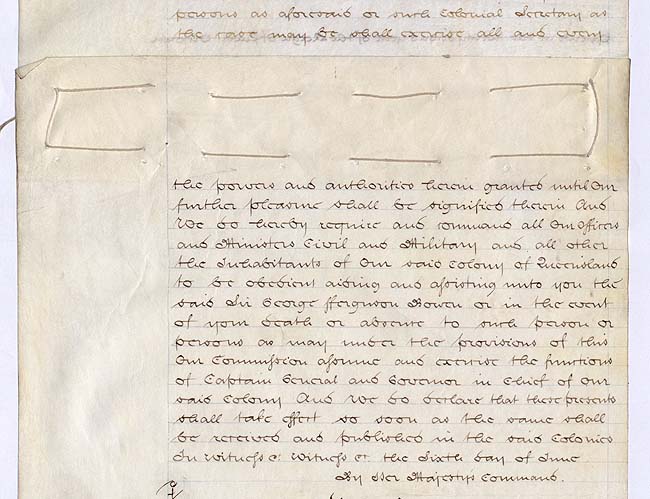 persons as aforesaid or such Colonial Secretary as
the case may be shall exercise all and every
the powers and authorities herein granted until Our
further pleasure shall be signified therein And
We do hereby require and command all Our Officers
and Ministers Civil and Military and all other
the Inhabitants of Our said Colony of Queensland
to be obedient aiding and assisting unto you the
said Sir George Fferguson Bowen or in the event
of your death or absence to such person or
persons as may under the provisions of this
Our Commission assume and exercise the functions
of Captain General and Governor in Chief of Our
said Colony And We do declare that these presents
shall take effect so soon as the same shall
be received and published in the said Colonies
In Witness &c Witness &c the Sixth day of June
By Her Majestys Command.